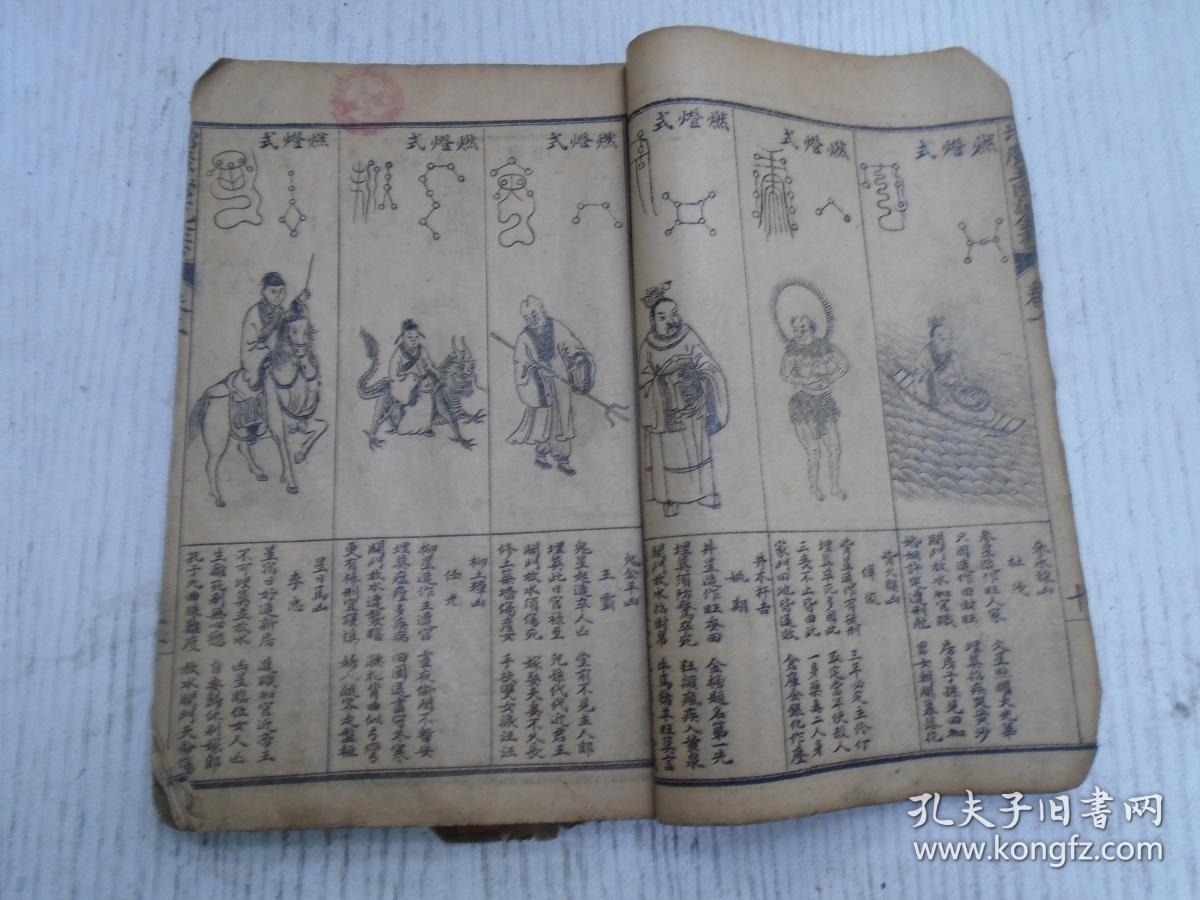 燃燈式
參水猿凶
杜茂
參星造作旺人家
文星照耀大光華
只因造作田財旺
埋葬招疾哭黃沙
開門放水加官職
房房子孫見田加
婚姻許定遭刑剋
男女朝開暮落花
燃燈式
觜火猴凶
傅俊
觜星造作有徒刑
三年必定主伶仃
埋葬卒死多因此
取定寅年使殺人
三喪不止皆由此
一身藥毒二人身
家門田地皆退敗
倉庫金銀化作塵
燃燈式
井木犴吉
姚期
井星造作旺蚕田
金榜題名第一光
埋葬須防驚卒死
狂顛瘋疾入黃泉
開門放水招財帛
牛馬豬羊旺莫言
燃燈式
鬼金羊凶
王霸
鬼星起造卒人亡
堂前不見主人郎
埋葬此日官祿至
兒孫代代近君王
開門放水須傷死
嫁娶夫妻不久長
修土築墻傷產女
手扶雙女淚汪汪
燃燈式
柳土獐凶
任光
柳星造作主遭官
晝夜偷閉不暫安
埋葬瘟㾮多疾病
田園退盡守冬寒
開門放水遭聾瞎
腰扎背曲似弓彎
更有棒刑宜謹慎
婦人隨客走盤桓
燃燈式
星日馬凶
李忠
星宿日好造新房
進職加官近帝王
不可埋葬並放水
凶星臨位女人亡
生離死別無心戀
自要歸休別嫁郎
孔子九曲殊難度
放水開門天命傷
孔夫子旧書网
www.kongfz.com